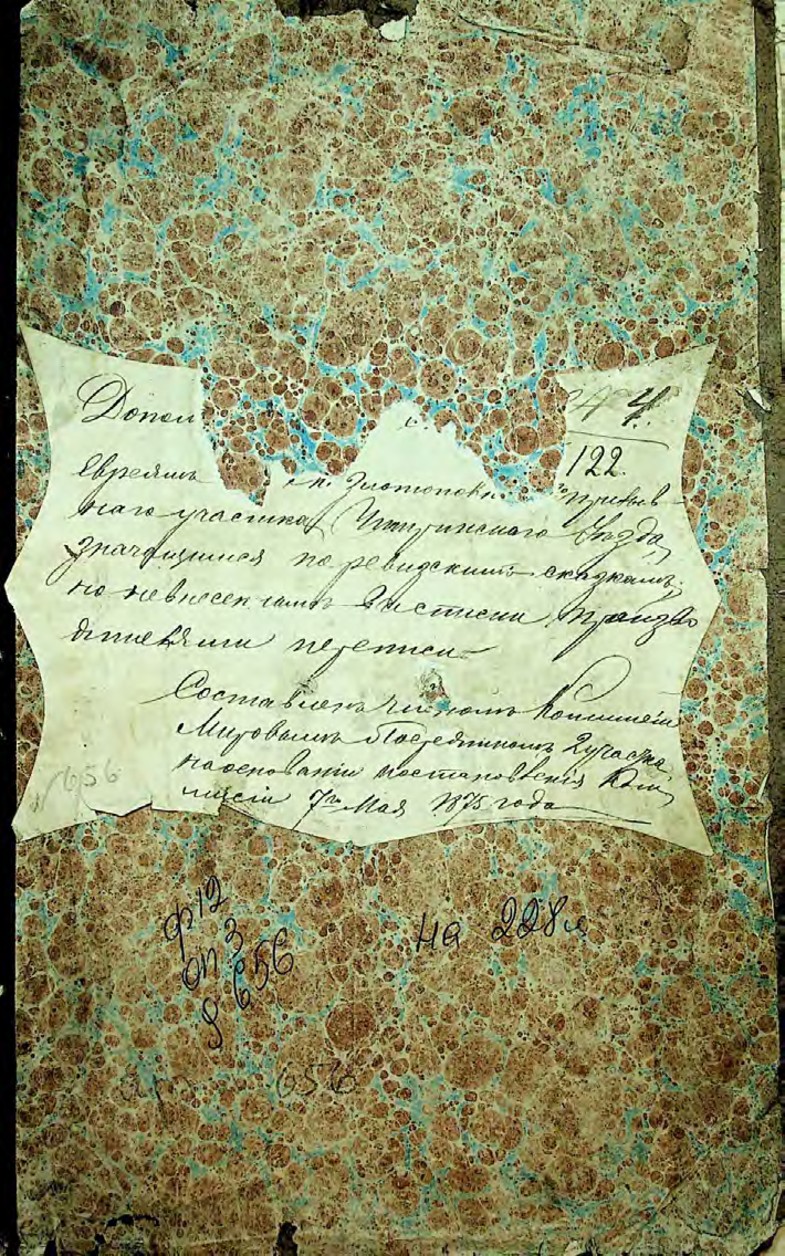 Допол
№ 4.
122.
Евреямъ м. Златополь го призыв
наго участка Чигиринского Уѣзда,
значащимся по ревизскимъ сказкамъ,
но невнесеннымъ въ списки произво
дителями переписи
Составленъ Членомъ Коммисіи
Мировымъ Посредникомъ 2 участка,
на основаніи постановленія Ком
мисіи 7го Мая 1875 года
656
ф 12
оп 3
д 656
на 228 л
656